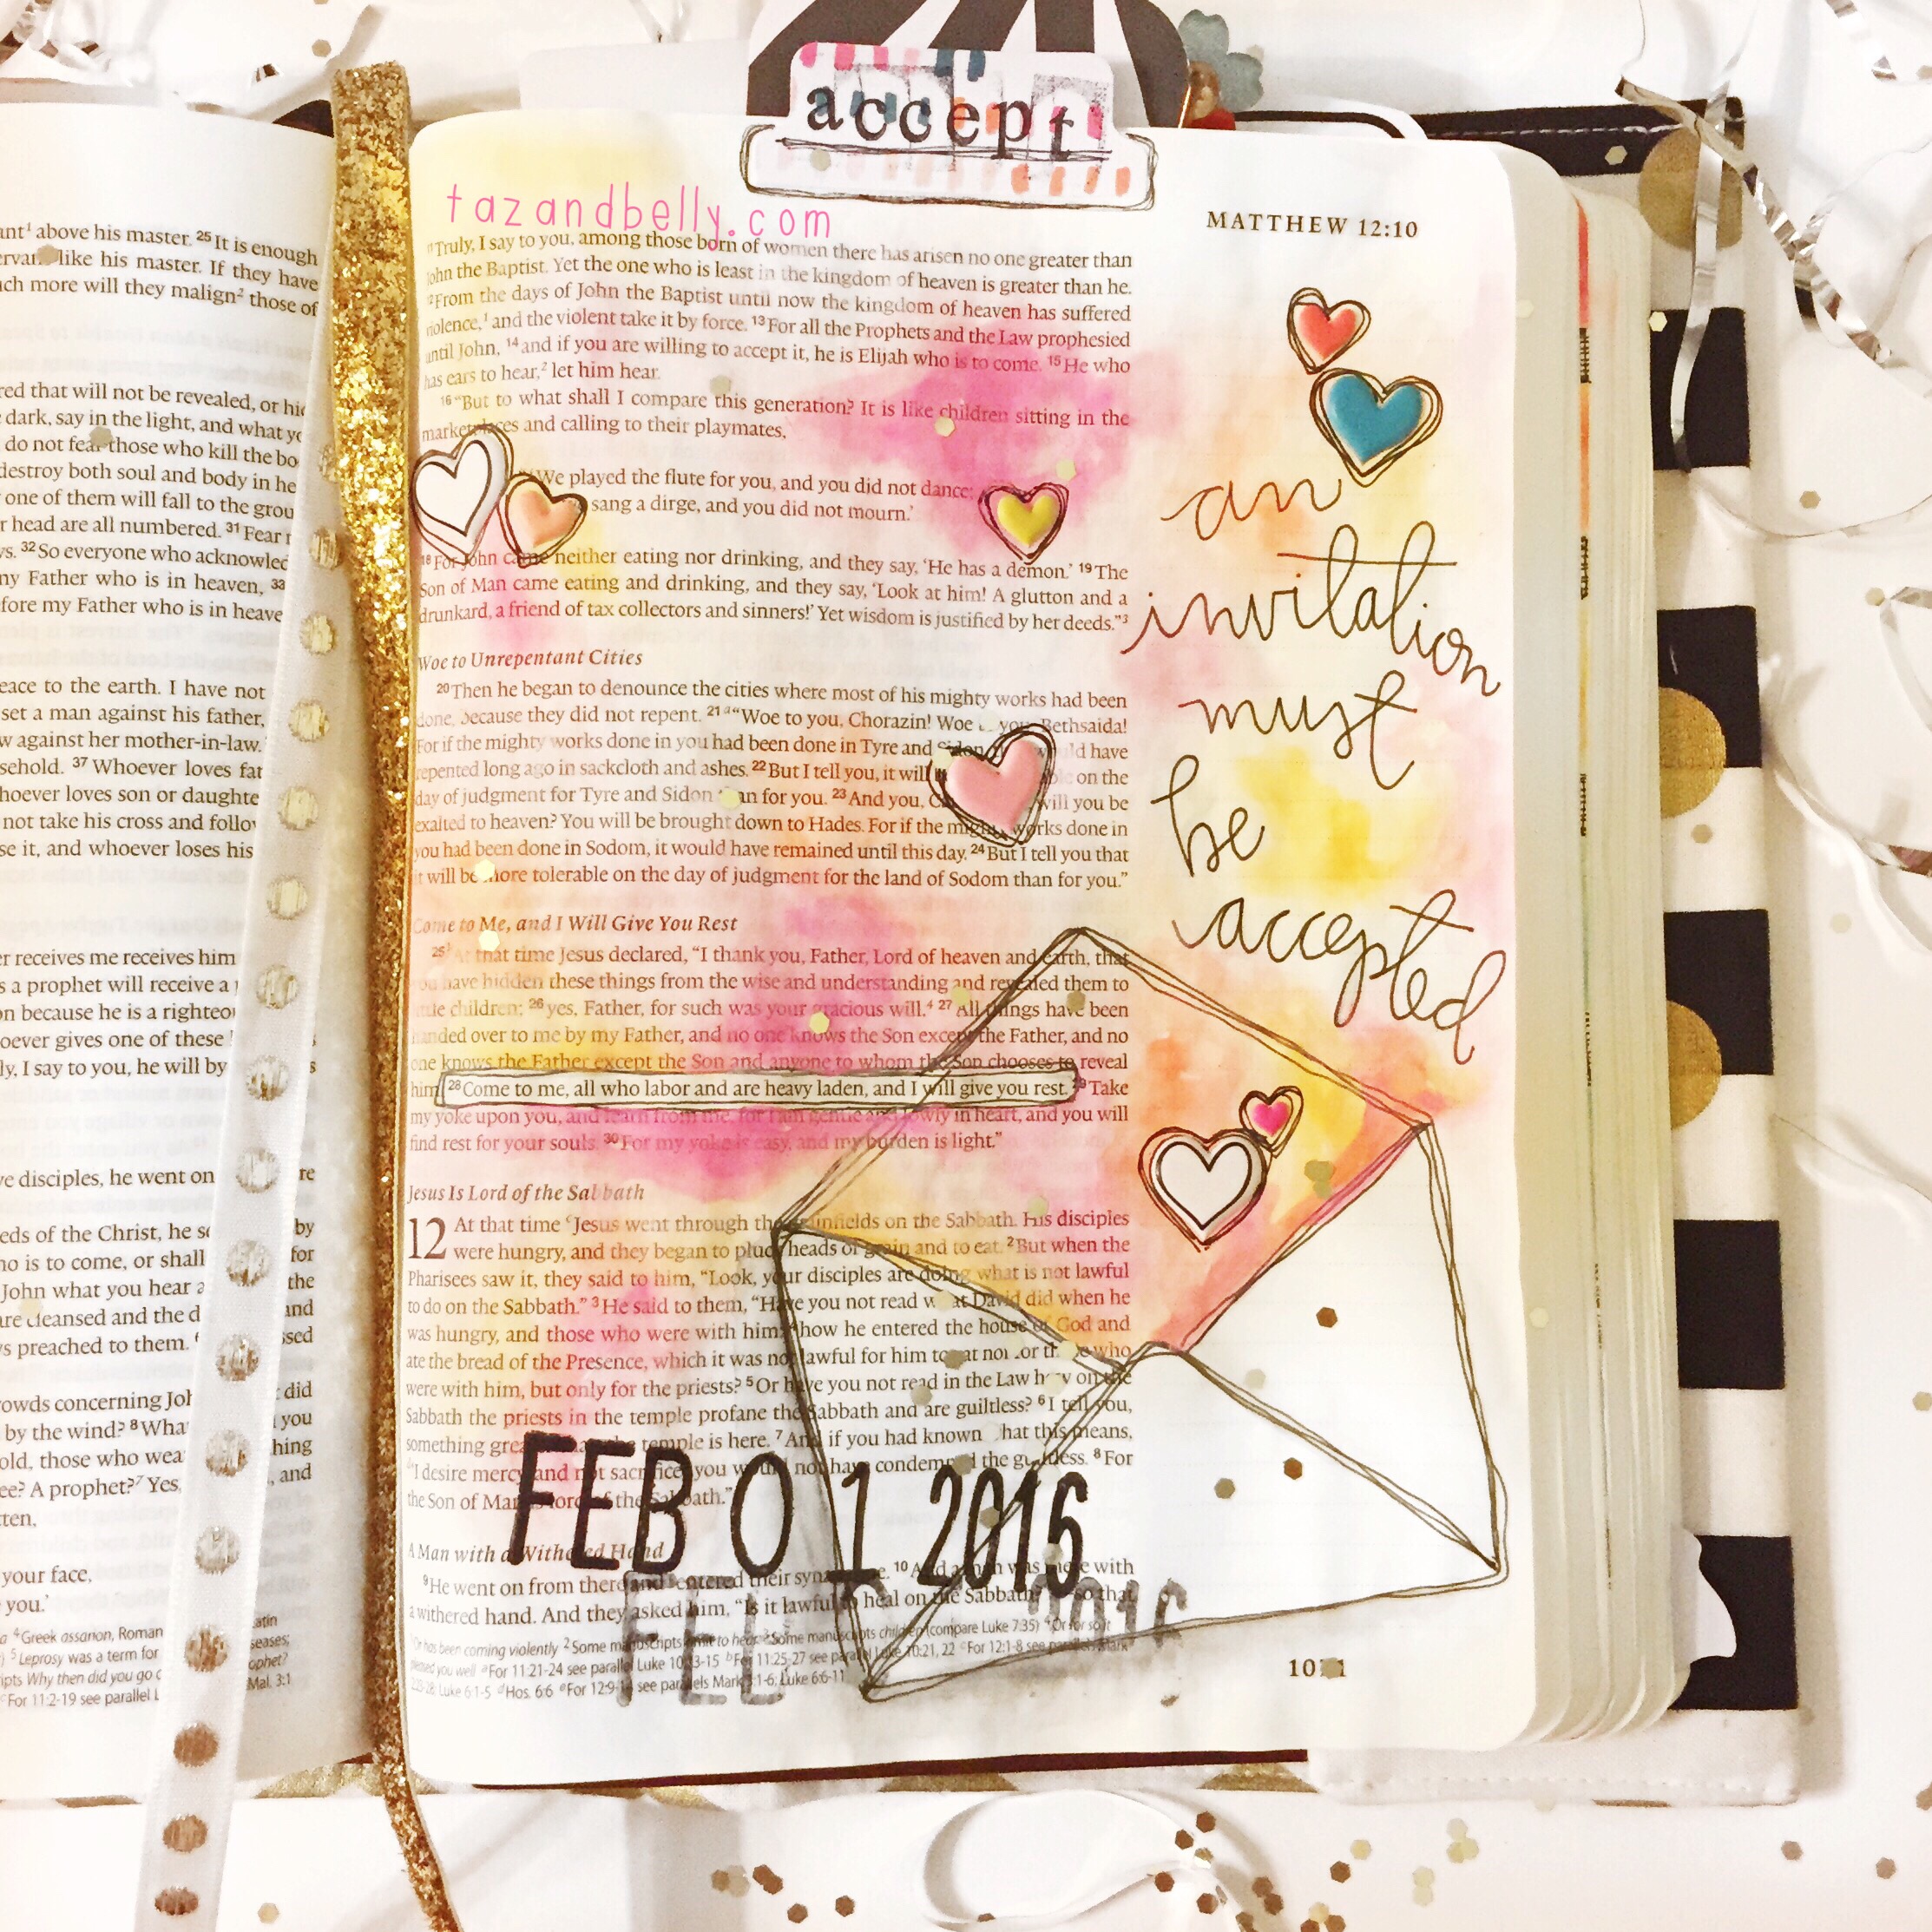 accept
tazandbelly.com
MATTHEW 12:10
ant¹ above his master. 25 It is enough
like his master. If they have
more will they malign² those of
red that will not be revealed, or
dark, say in the light, and what
do not fear those who kill the
destroy both soul and body in
one of them will fall to the
head are all numbered. 31 Fear
32 So everyone who
my Father who is in heaven, 33
my Father who is in
peace to the earth. I have not
set a man against his father,
against her mother-in-law.
37 Whoever loves
loves son or
not take his cross and
it, and whoever loses his
receives me receives him
a prophet will receive a
because he is a
gives one of these
I say to you, he will by
disciples, he went on
of the Christ, he
by
is to come, or shall
for
John what you hear
the
are cleansed and the
and
preached to them.
concerning
did
by the wind? 8
you
those who
A prophet?⁷ Yes,
and
your face,
you.'
⁴Greek assarion, Roman
⁵Leprosy was a term for
Why then did you go
For 11:2-19 see parallel
Mal. 3:1
"Truly, I say to you, among those born of women there has arisen no one greater than
John the Baptist. Yet the one who is least in the kingdom of heaven is greater than he.
From the days of John the Baptist until now the kingdom of heaven has suffered
violence,¹ and the violent take it by force. 13 For all the Prophets and the Law prophesied
until John, 14 and if you are willing to accept it, he is Elijah who is to come. 15 He who
has ears to hear,² let him hear.
16 "But to what shall I compare this generation? It is like children sitting in the
marketplaces and calling to their playmates,
We played the flute for you, and you did not dance;
sang a dirge, and you did not mourn.'
18 For John came neither eating nor drinking, and they say, 'He has a demon.' 19 The
Son of Man came eating and drinking, and they say, 'Look at him! A glutton and a
drunkard, a friend of tax collectors and sinners!' Yet wisdom is justified by her deeds."³
Woe to Unrepentant Cities
20 Then he began to denounce the cities where most of his mighty works had been
done, because they did not repent. 21 "Woe to you, Chorazin! Woe you, Bethsaida!
For if the mighty works done in you had been done in Tyre and Sidon, have
repented long ago in sackcloth and ashes. 22 But I tell you, it will on the
day of judgment for Tyre and Sidon than for you. 23 And you, will you be
exalted to heaven? You will be brought down to Hades. For if the mighty works done in
you had been done in Sodom, it would have remained until this day. 24 But I tell you that
it will be more tolerable on the day of judgment for the land of Sodom than for you."
Come to Me, and I Will Give You Rest
25 At that time Jesus declared, "I thank you, Father, Lord of heaven and earth, that
you have hidden these things from the wise and understanding and revealed them to
little children; 26 yes, Father, for such was your gracious will.⁴ 27 All things have been
handed over to me by my Father, and no one knows the Son except the Father, and no
one knows the Father except the Son and anyone to whom the Son chooses to reveal
him. 28 Come to me, all who labor and are heavy laden, and I will give you rest. 29 Take
my yoke upon you, and learn from me, for I am gentle and lowly in heart, and you will
find rest for your souls. 30 For my yoke is easy, and my burden is light."
Jesus Is Lord of the Sabbath
12 At that time Jesus went through the grainfields on the Sabbath. His disciples
were hungry, and they began to pluck heads of grain and to eat. 2 But when the
Pharisees saw it, they said to him, "Look, your disciples are doing what is not lawful
to do on the Sabbath." 3 He said to them, "Have you not read what David did when he
was hungry, and those who were with him: 4 how he entered the house of God and
ate the bread of the Presence, which it was not lawful for him to eat nor for those who
were with him, but only for the priests? 5 Or have you not read in the Law how on the
Sabbath the priests in the temple profane the Sabbath and are guiltless? 6 I tell you,
something greater than the temple is here. 7 And if you had known what this means,
'I desire mercy and not sacrifice,' you would not have condemned the guiltless. 8 For
the Son of Man is lord of the Sabbath."
FEB 01 2016
A Man with a Withered Hand
9 He went on from there and entered their synagogue. 10 And a man was there with
a withered hand. And they asked him, "Is it lawful to heal on the Sabbath?"—so that
Or has been coming violently ²Some manuscripts omit to hear ³Some manuscripts children (compare Luke 7:35) ⁴Or for so it
pleased you well For 11:21-24 see parallel Luke 10:13-15 For 11:25-27 see parallel Luke 10:21, 22 For 12:1-8 see parallels Mark
2:23-28; Luke 6:1-5 Hos. 6:6 For 12:9-14 see parallels Mark 3:1-6; Luke 6:6-11
FEB 2016
an
invitation
must
be
accepted